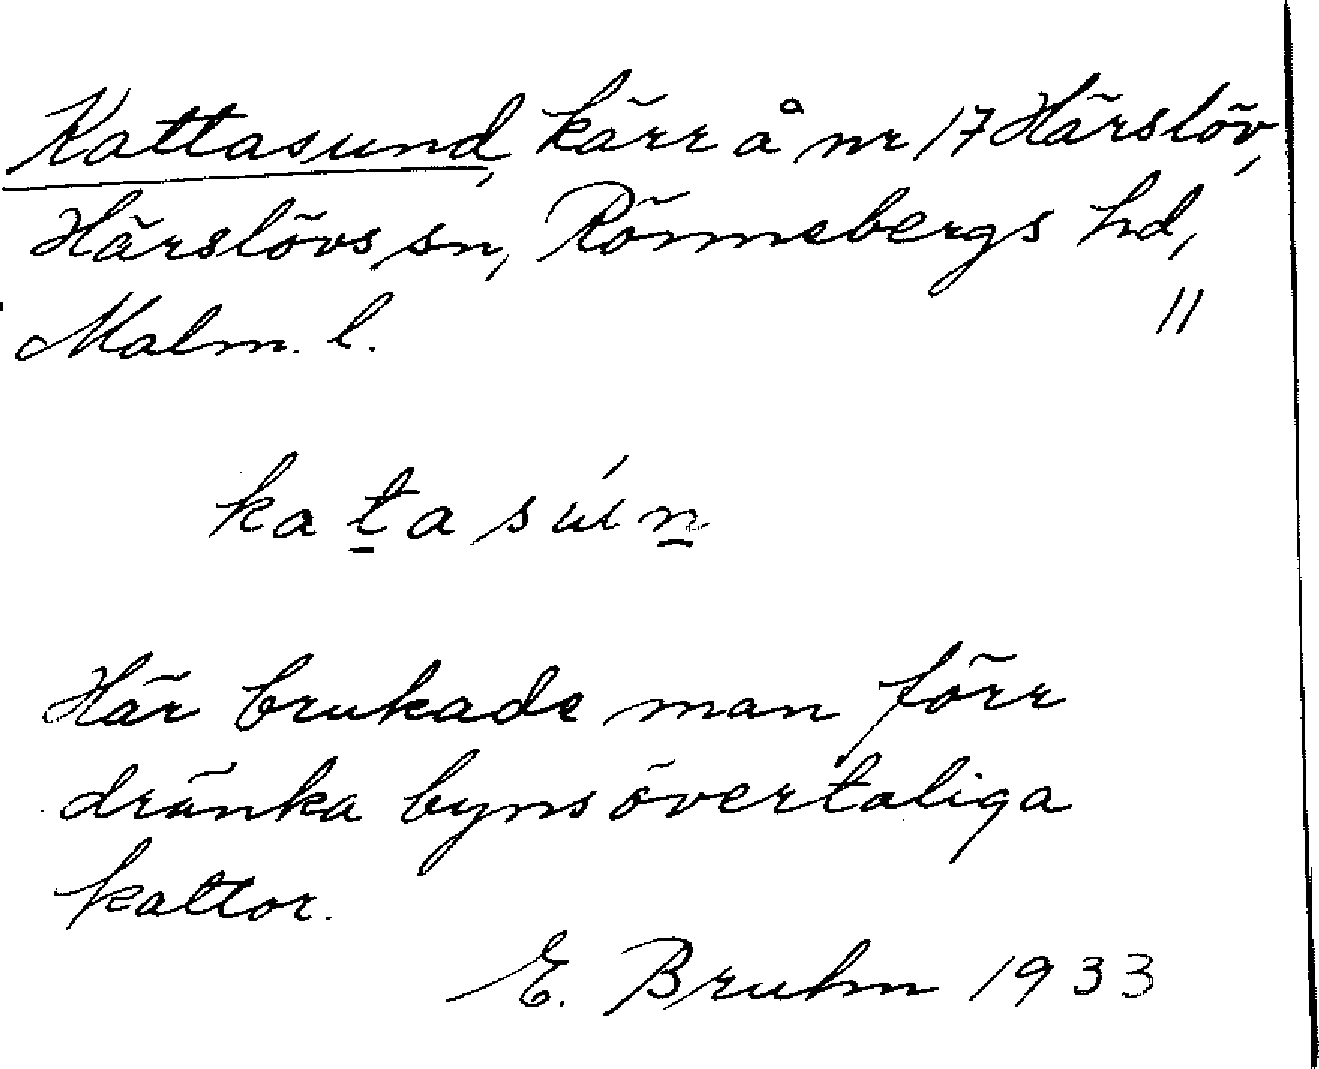 Kattasund, kärr å nr 17 Härslöv,
Härslövs sn, Rönnebergs hd,
Malm. l. 11
kat̲asún̲
Här brukade man förr
dränka byns övertaliga
kattor.
E. Bruhn 1933